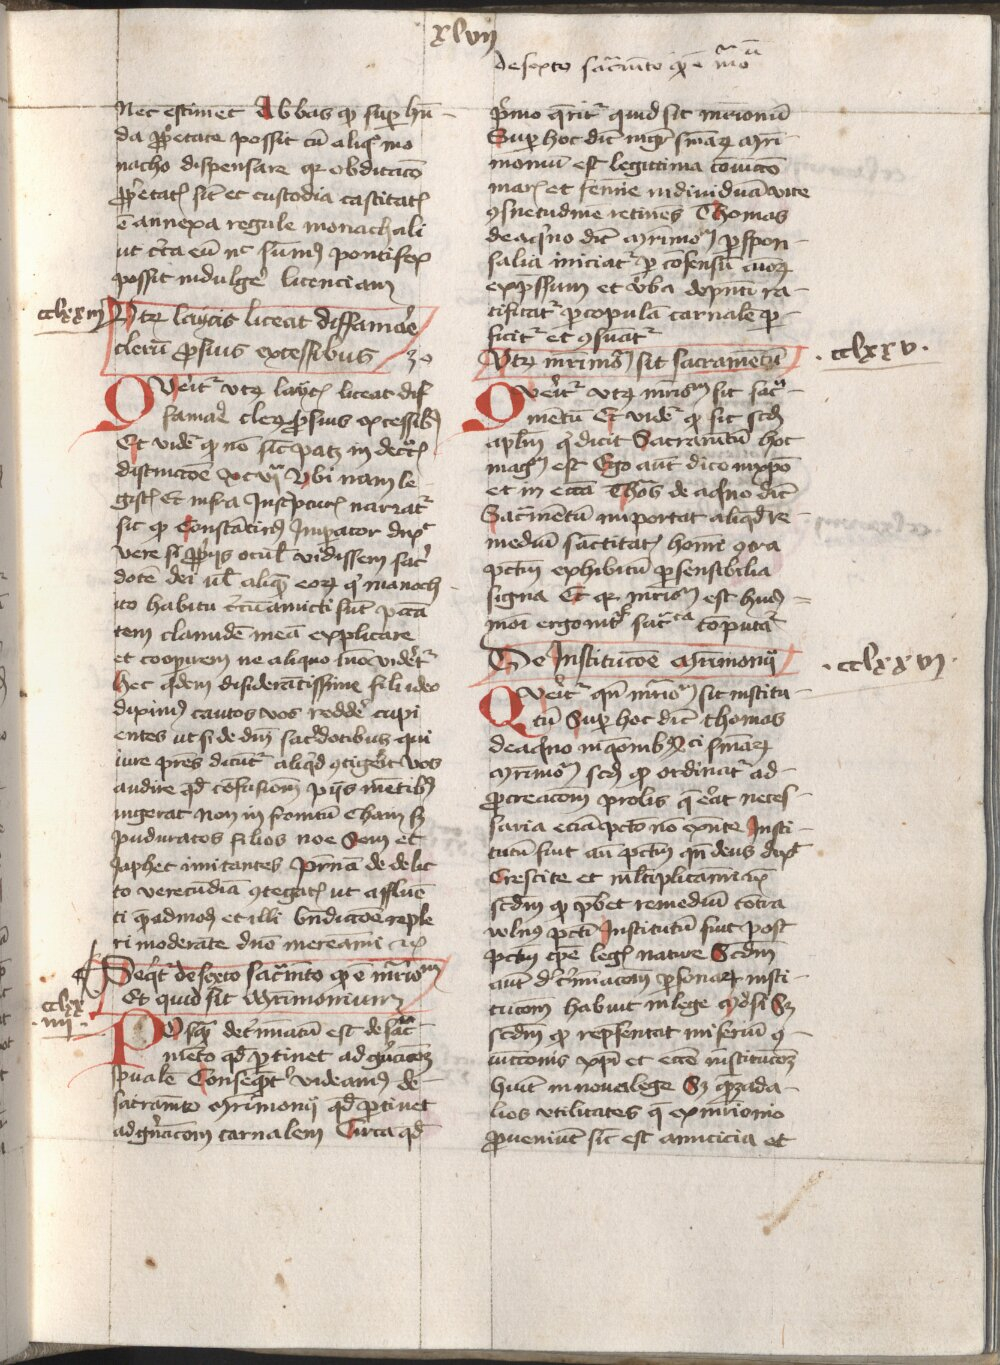 xlvii
de sexto sacramento qd e mrio
Nec estimet Abbas qp sup hu
da pprietate possit cu aliq mo
nacho dispensare qr obdicaco
pprietatis sic et custodia castitatis
e annexa regule monachali
ut contra eum nec summus pontifex
possit indulgere licenciam
cclxxiii
Utrum laycis liceat diffamare
clerum pro suis excessibus
30
Queritur utrum laycis liceat dif
famare clerum pro suis excessibus
Et videtur quod non sicut patet in decretis
distinctione xcvi Ubi nam le
gistis Et infra narratur
sic quod Constantinus Imperator dixit
vere si propriis oculis vidissem sacer
dotem dei vel aliquem eorum qui monach
ico habitu circumamicti sunt peccan
tem clamidem meam explicarem
et cooperirem ne ab aliquo videretur
hec quidem desiderantissime fili ideo
diximus cautos vos reddere cupi
entes ut si de domini sacerdotibus qui
iure patres dicuntur aliquid contigerit vos
audire quod confusionem piis mentibus
ingerat non in fontum Cham sed
puduratos filios noe Sem et
Japhet imitantes paternam de delic
to verecundiam contegatis ut affluen
ti quemadmodum et illi benedictione reple
ri moderante domino mereamini etc
Sequitur de sexto sacramento quod est matrimonium
Et quid sit Matrimonium
cclxx
iiii
Postquam determinatum est de sacra
mento quod pertinet ad generacionem
spiritualem Consequenter videamus de
sacramento Matrimonii quod pertinet
ad generacionem carnalem Circa quod
primo queritur quid sit matrimonium
Super hoc dicit magister sententiarum Matri
monium est legittima coniunctio
maris et femine individuam vite
consuetudinem retinens Thomas
de aquino dicit Matrimonium per spon
salia iniciatur per consensum
expressum et verba de presenti ra
tificatur per copulam carnalem per
ficitur et conservatur
Utrum matrimonium sit sacramentum
.cclxxv.
Queritur utrum matrimonium sit sacra
mentum Et videtur quod sic secundum
apostolum qui dicit Sacramentum hoc
magnum est Ego autem dico in christo
et in ecclesia Thomas de aquino dicit
Sacramentum importat aliquod re
medium sanctitatis homini contra
peccatum exhibitum per sensibilia
signa Et quia matrimonium est huius
modi ergo inter sacramenta computatur
De Institucione Matrimonii
.cclxxvi.
Queritur quando matrimonium sit institu
tum Super hoc dicit thomas
de aquino in questionibus sententiarum
Matrimonium secundum quod ordinatur ad
procreacionem prolis que erat neces
saria eciam peccato non existente Insti
tutum fuit ante peccatum quando deus dixit
Crescite et multiplicamini etc
secundum quod prebet remedium contra
vulnus peccati Institutum fuit post
peccatum tempore legis nature Secundum
autem determinacionem personarum insti
tucionem habuit in lege Moysi Sed
secundum quod representat misterium con
iunctionis christi et ecclesie institucionem
habuit in nova lege Sed quantum ad a
lios utilitates que ex matrimonio
proveniunt sicut est amicicia et